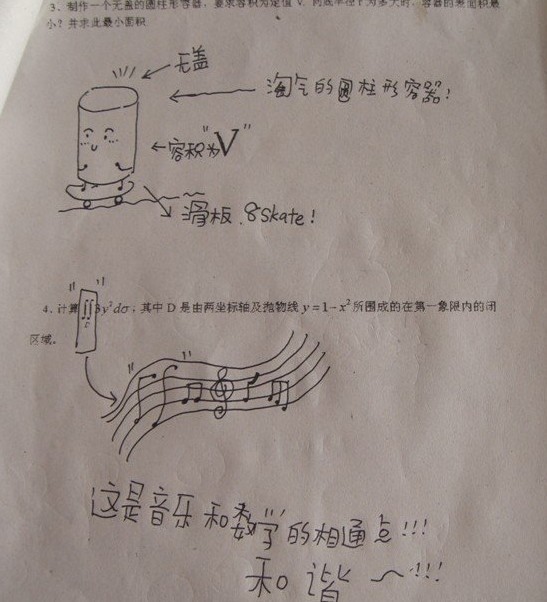 3、制作一个无盖的圆柱形容器，要求容积为定值 V，问底半径 r 为多大时，容器的表面积最
小？并求此最小面积
无盖
淘气的圆柱形容器！
容积为"V"
滑板.8skate！
4、计算∬3y²dσ，其中 D 是由两坐标轴及抛物线 y＝1－x² 所围成的在第一象限内的闭
区域。
这是音乐和数学的相通点!!!
和谐～!!!